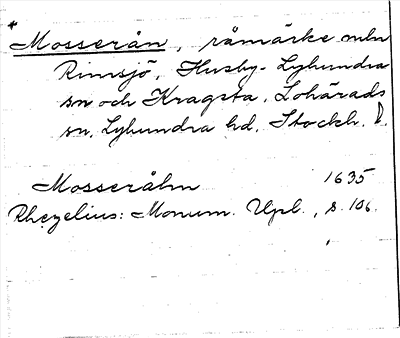 *
Mosserån, råmärke mln
Rimsjö, Husby-Lyhundra
sn och Kragsta, Lohärads
sn, Lyhundra hd, Stockh. l.
Mosseråhn 1635
Rhezelius: Monum. Upl., s. 106.